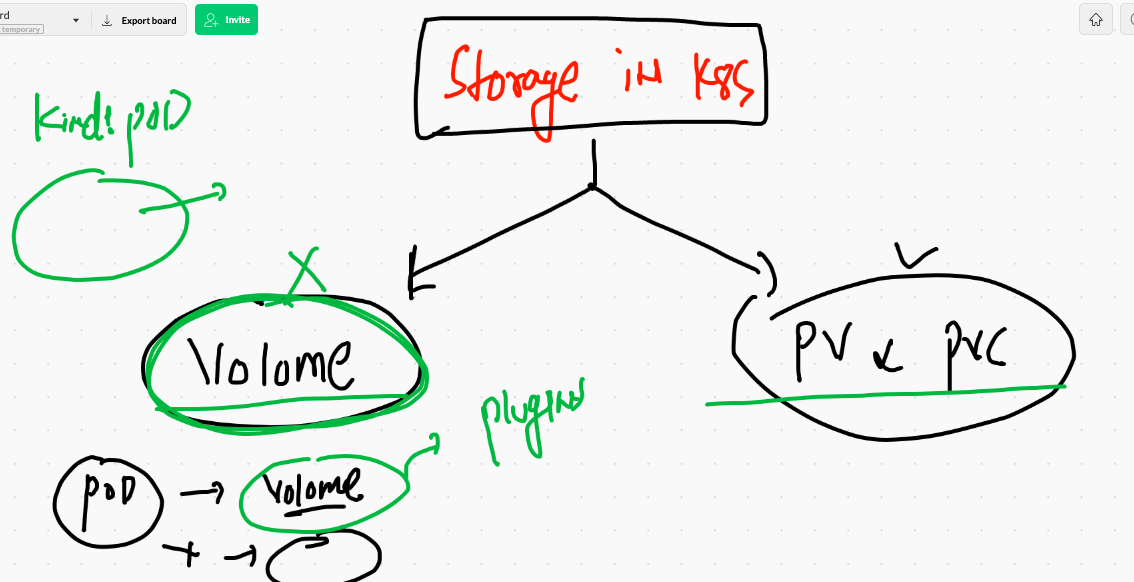 rd
temporary
Export board
Invite
Storage in K8S
Kind: POD
Volome
PV & PVC
plugins
POD → Volome
+ →